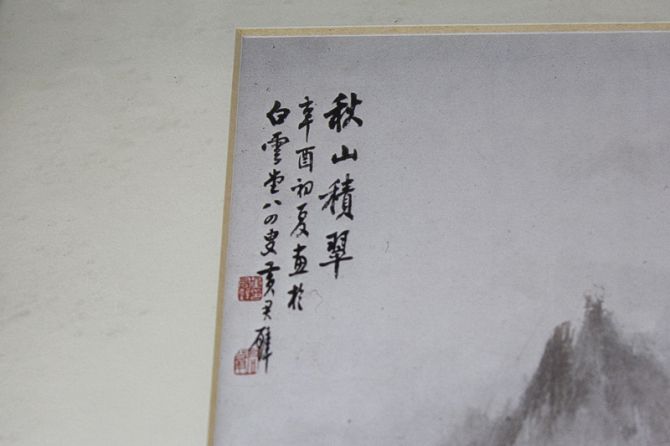 秋山積翠
辛酉初夏畫於
白雲堂八四叟黃君璧